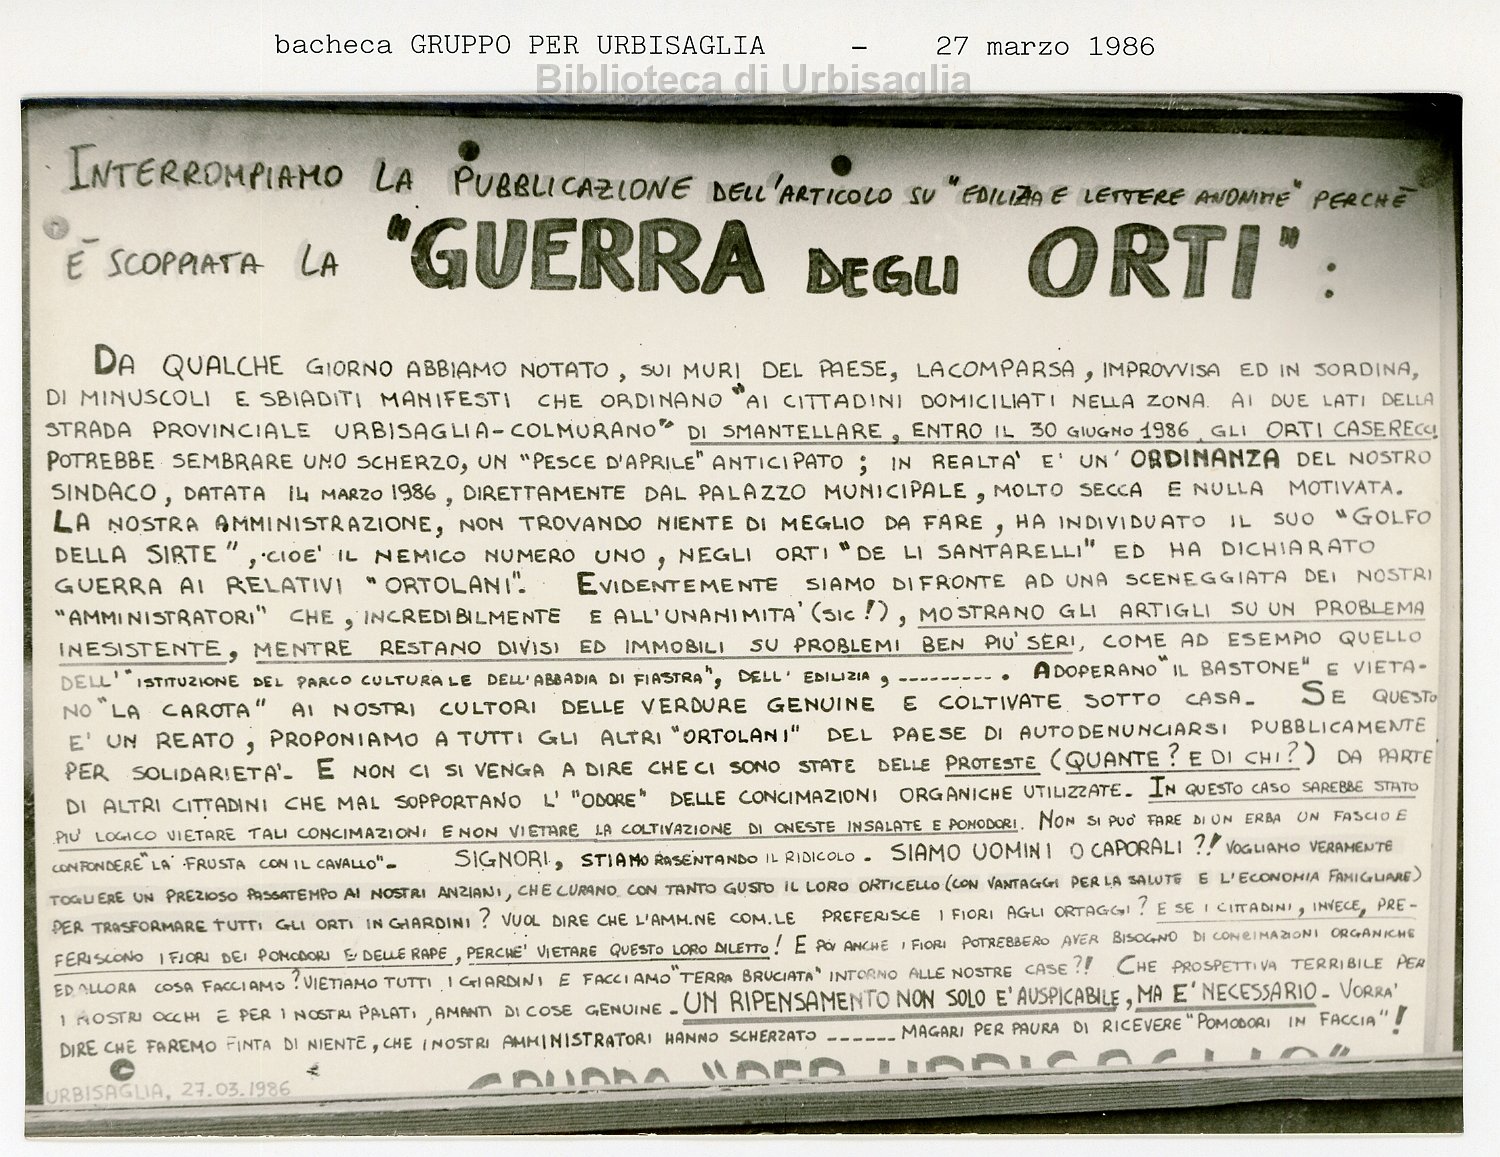 bacheca GRUPPO PER URBISAGLIA - 27 marzo 1986
Biblioteca di Urbisaglia
INTERROMPIAMO LA PUBBLICAZIONE DELL'ARTICOLO SU "EDILIZIA E LETTERE ANONIME" PERCHÈ
È SCOPPIATA LA "GUERRA DEGLI ORTI" :
DA QUALCHE GIORNO ABBIAMO NOTATO, SUI MURI DEL PAESE, LA COMPARSA, IMPROVVISA ED IN SORDINA,
DI MINUSCOLI E SBIADITI MANIFESTI CHE ORDINANO "AI CITTADINI DOMICILIATI NELLA ZONA AI DUE LATI DELLA
STRADA PROVINCIALE URBISAGLIA-COLMURANO" DI SMANTELLARE, ENTRO IL 30 GIUGNO 1986, GLI ORTI CASERECCI.
POTREBBE SEMBRARE UNO SCHERZO, UN "PESCE D'APRILE" ANTICIPATO ; IN REALTA' E' UN' ORDINANZA DEL NOSTRO
SINDACO, DATATA 14 MARZO 1986, DIRETTAMENTE DAL PALAZZO MUNICIPALE, MOLTO SECCA E NULLA MOTIVATA.
LA NOSTRA AMMINISTRAZIONE, NON TROVANDO NIENTE DI MEGLIO DA FARE, HA INDIVIDUATO IL SUO "GOLFO
DELLA SIRTE", CIOE' IL NEMICO NUMERO UNO, NEGLI ORTI "DE LI SANTARELLI" ED HA DICHIARATO
GUERRA AI RELATIVI "ORTOLANI". EVIDENTEMENTE SIAMO DI FRONTE AD UNA SCENEGGIATA DEI NOSTRI
"AMMINISTRATORI" CHE, INCREDIBILMENTE E ALL'UNANIMITA' (SIC!), MOSTRANO GLI ARTIGLI SU UN PROBLEMA
INESISTENTE, MENTRE RESTANO DIVISI ED IMMOBILI SU PROBLEMI BEN PIU' SERI, COME AD ESEMPIO QUELLO
DELL' "ISTITUZIONE DEL PARCO CULTURALE DELL'ABBADIA DI FIASTRA", DELL' EDILIZIA, ---------. ADOPERANO "IL BASTONE" E VIETA-
NO "LA CAROTA" AI NOSTRI CULTORI DELLE VERDURE GENUINE E COLTIVATE SOTTO CASA. SE QUESTO
E' UN REATO, PROPONIAMO A TUTTI GLI ALTRI "ORTOLANI" DEL PAESE DI AUTODENUNCIARSI PUBBLICAMENTE
PER SOLIDARIETA'. E NON CI SI VENGA A DIRE CHE CI SONO STATE DELLE PROTESTE (QUANTE? E DI CHI?) DA PARTE
DI ALTRI CITTADINI CHE MAL SOPPORTANO L' "ODORE" DELLE CONCIMAZIONI ORGANICHE UTILIZZATE. IN QUESTO CASO SAREBBE STATO
PIU' LOGICO VIETARE TALI CONCIMAZIONI E NON VIETARE LA COLTIVAZIONE DI ONESTE INSALATE E POMODORI. NON SI PUO' FARE DI UN ERBA UN FASCIO E
CONFONDERE "LA FRUSTA CON IL CAVALLO". SIGNORI, STIAMO RASENTANDO IL RIDICOLO. SIAMO UOMINI O CAPORALI?! VOGLIAMO VERAMENTE
TOGLIERE UN PREZIOSO PASSATEMPO AI NOSTRI ANZIANI, CHE CURANO CON TANTO GUSTO IL LORO ORTICELLO (CON VANTAGGI PER LA SALUTE E L'ECONOMIA FAMIGLIARE)
PER TRASFORMARE TUTTI GLI ORTI IN GIARDINI? VUOL DIRE CHE L'AMM.NE COM.LE PREFERISCE I FIORI AGLI ORTAGGI? E SE I CITTADINI, INVECE, PRE-
FERISCONO I FIORI DEI POMODORI E DELLE RAPE, PERCHE' VIETARE QUESTO LORO DILETTO! E POI ANCHE I FIORI POTREBBERO AVER BISOGNO DI CONCIMAZIONI ORGANICHE
ED ALLORA COSA FACCIAMO? VIETIAMO TUTTI I GIARDINI E FACCIAMO "TERRA BRUCIATA" INTORNO ALLE NOSTRE CASE?! CHE PROSPETTIVA TERRIBILE PER
I NOSTRI OCCHI E PER I NOSTRI PALATI, AMANTI DI COSE GENUINE. UN RIPENSAMENTO NON SOLO E' AUSPICABILE, MA E' NECESSARIO. VORRA'
DIRE CHE FAREMO FINTA DI NIENTE, CHE I NOSTRI AMMINISTRATORI HANNO SCHERZATO ------ MAGARI PER PAURA DI RICEVERE "POMODORI IN FACCIA"!
GRUPPO "PER URBISAGLIA"
URBISAGLIA, 27.03.1986